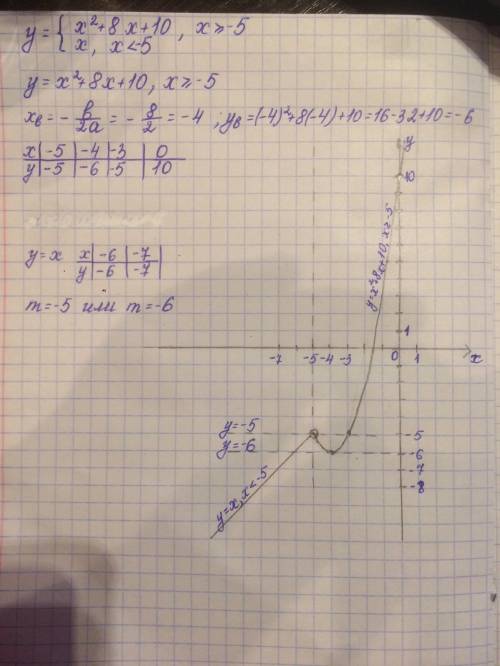 y = { x²+8x+10, x≥-5
x, x<-5
y = x²+8x+10, x≥-5
xв = -в/2a = -8/2 = -4 ; yв=(-4)²+8(-4)+10=16-32+10=-6
x|-5|-4|-3| |0
y|-5|-6|-5| |10
y=x x|-6|-7|
y|-6|-7|
m=-5 или m=-6
y
10
y=x²+8x+10, x≥-5
1
-7 -5 -4 -3 0 1 x
y=-5 -5
y=-6 -6
-7
-8
y=x, x<-5